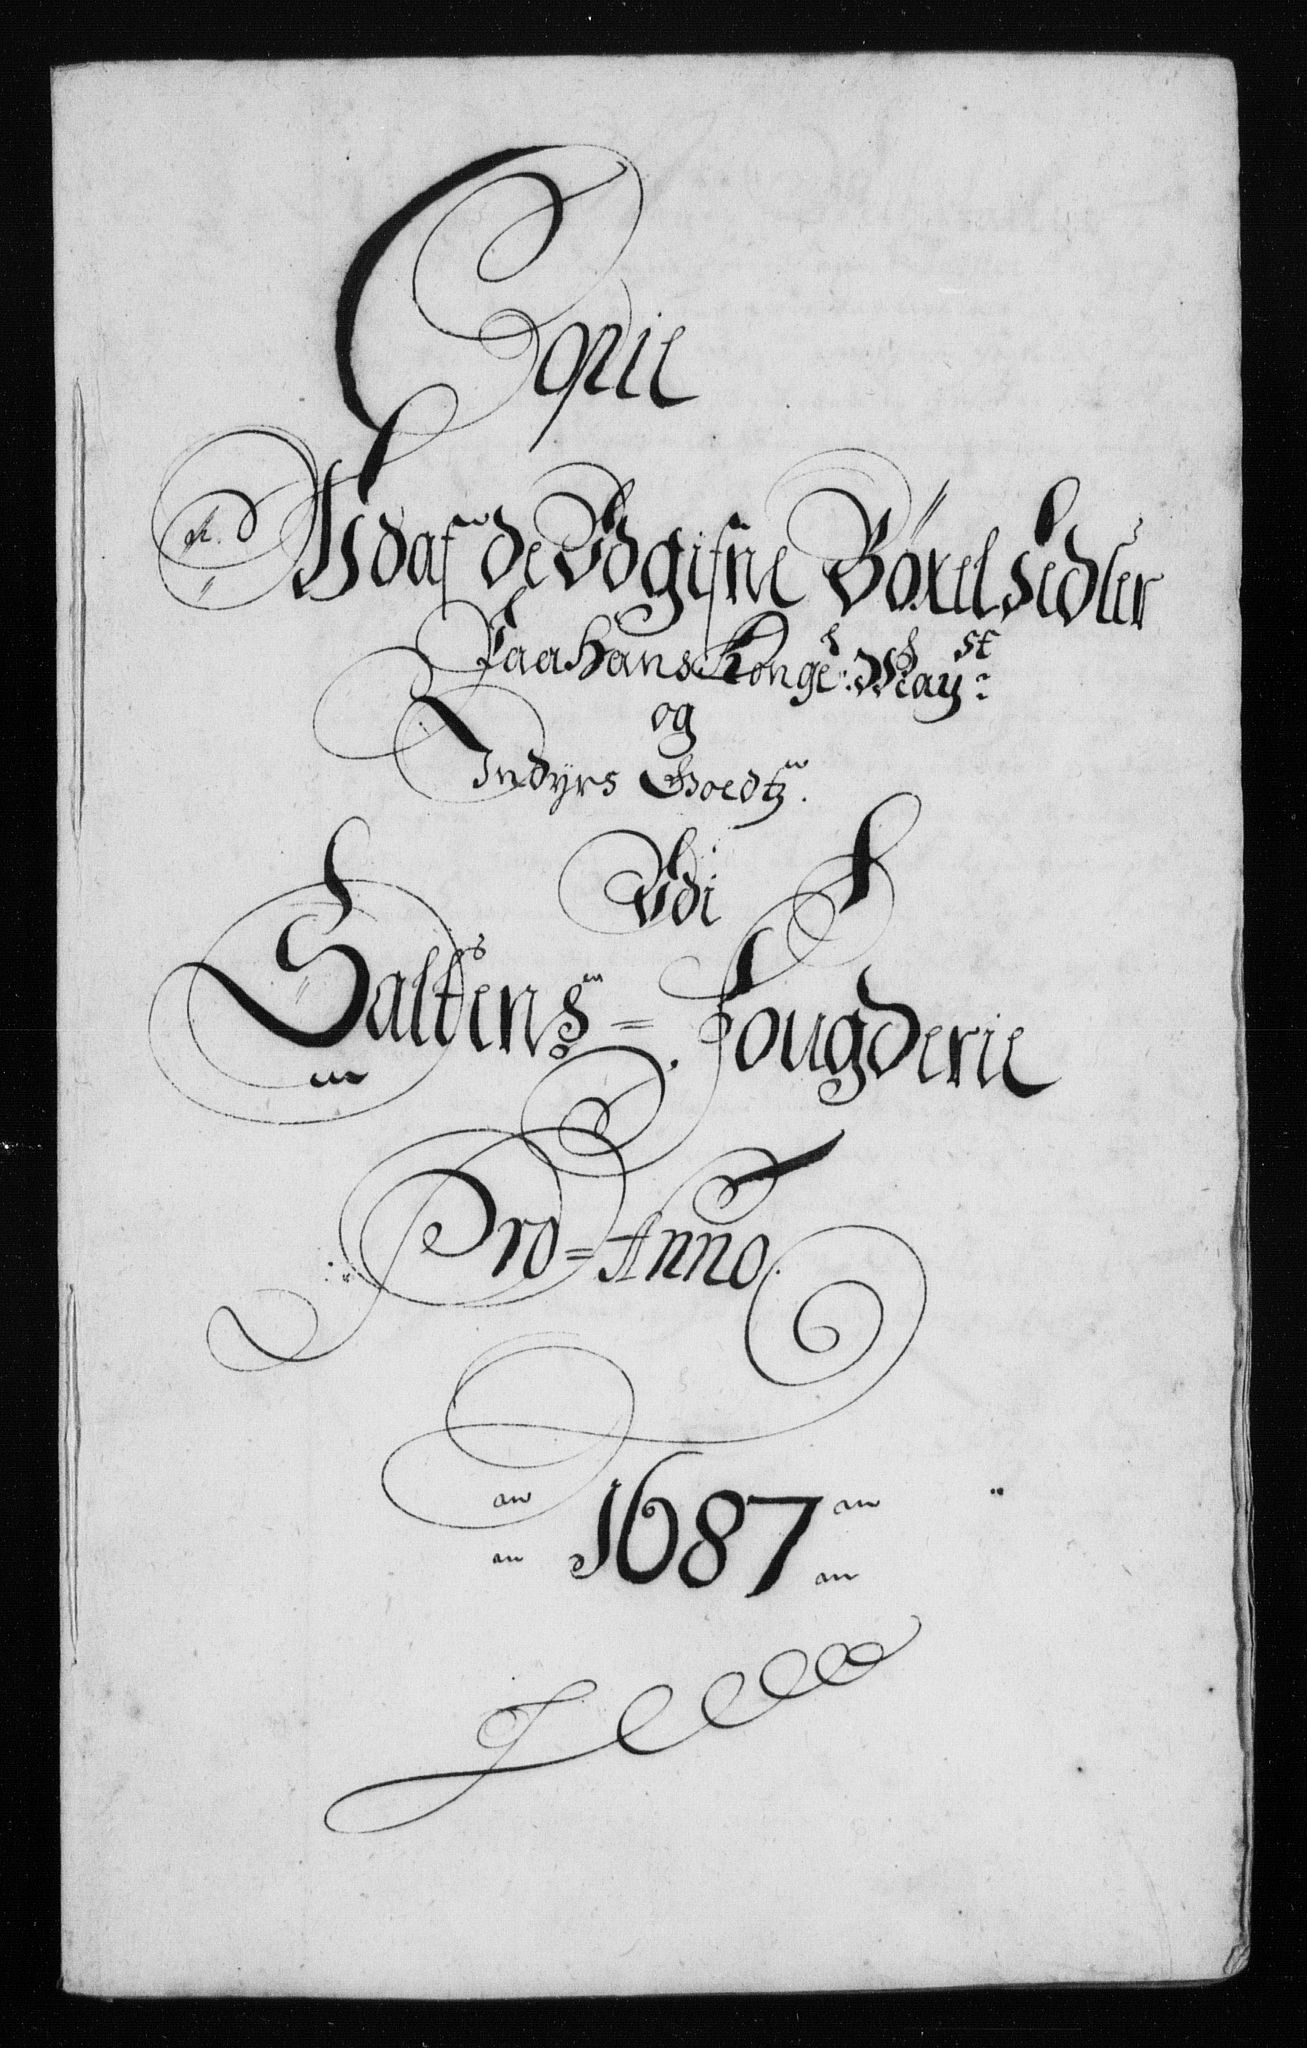 Copie
Udaf de Udgifne Böxelsedler
Paa Hans Kongel: Mayst:
og
Indyrs Goedtz.
Udi
Saltens = Fougderie
Pro = Anno
1687